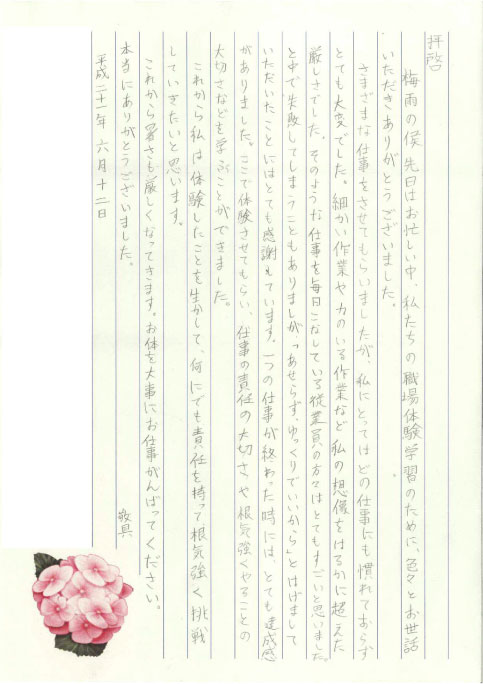 拝啓
梅雨の候 先日はお忙しい中、私たちの職場体験学習のために、色々とお世話
いただきありがとうございました。
さまざまな仕事をさせてもらいましたが、私にとってはどの仕事にも慣れておらず
とても大変でした。細かい作業や力のいる作業など私の想像をはるかに超えた
厳しさでした。そのような仕事を毎日こなしている従業員の方々はとてもすごいと思いました。
と中で失敗してしまうこともありましが「あせらず、ゆっくりでいいから」とはげまして
いただいたことにはとても感謝しています。一つの仕事が終わった時には、とても達成感
がありました。ここで体験させてもらい、仕事の責任の大切さや根気強くやることの
大切さなどを学ぶことができました。
これから私は体験したことを生かして、何にでも責任を持って根気強く挑戦
していきたいと思います。
これから暑さも厳しくなってきます。お体を大事にお仕事がんばってください。
本当にありがとうございました。
敬具
平成二十一年 六月十二日